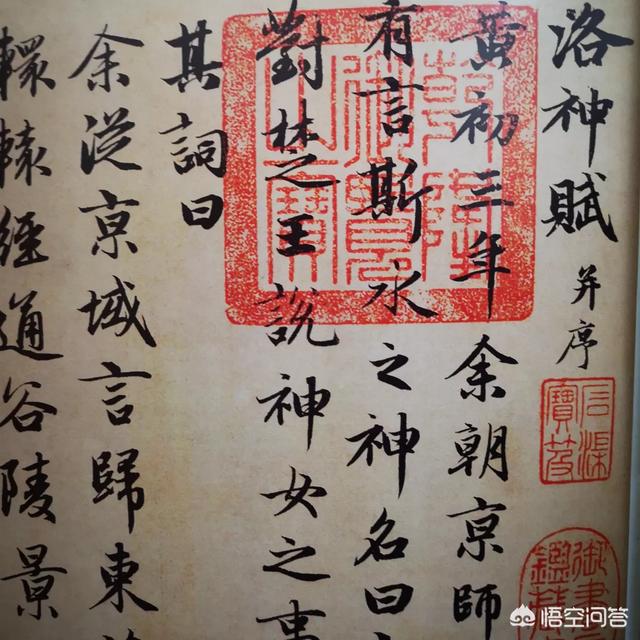 洛神賦 并序
黃初三年余朝京師
有言斯水之神名曰
對楚王說神女之事
其詞曰
余從京域言歸東
轘轅經通谷陵景
乾隆御覽之寶
石渠寶笈
悟空问答